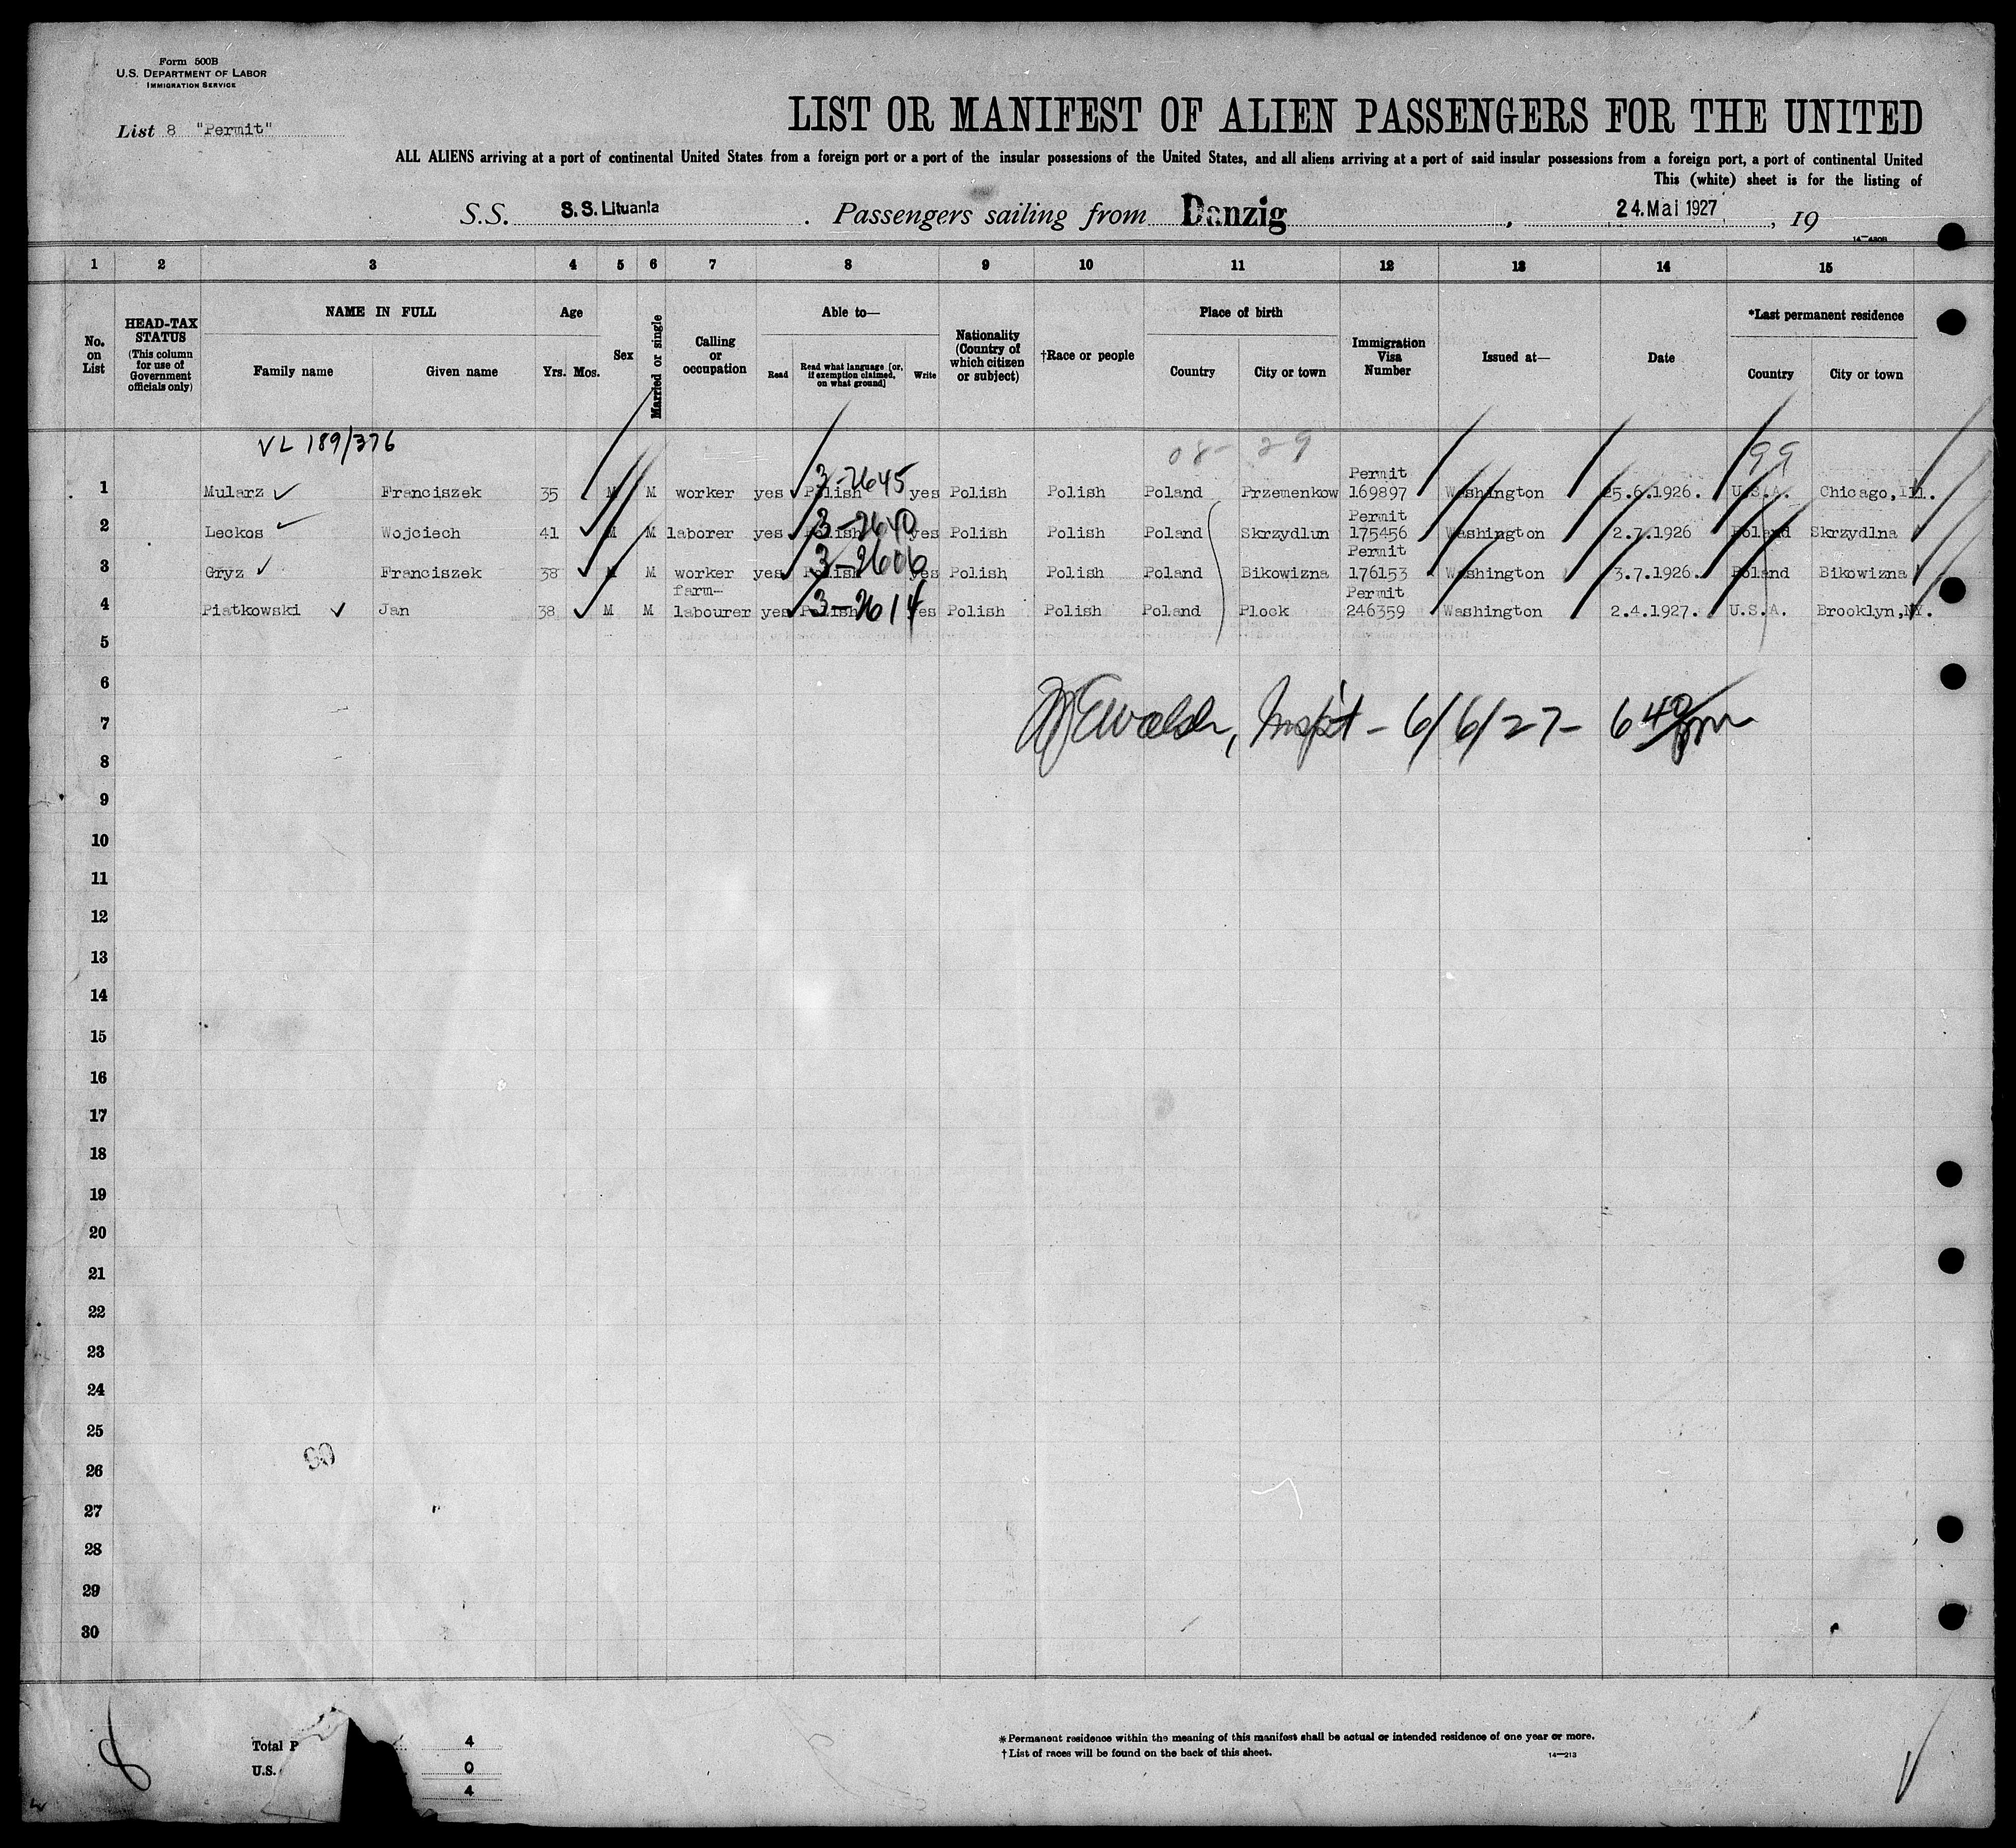 Form 500B
U.S. DEPARTMENT OF LABOR
IMMIGRATION SERVICE
List 8 "Permit"
LIST OR MANIFEST OF ALIEN PASSENGERS FOR THE UNITED
ALL ALIENS arriving at a port of continental United States from a foreign port or a port of the insular possessions of the United States, and all aliens arriving at a port of said insular possessions from a foreign port, a port of continental United
This (white) sheet is for the listing of
S.S. S.S. Lituania. Passengers sailing from Danzig, 24. Mai 1927, 19
1 2 3 4 5 6 7 8 9 10 11 12 13 14 15
No. on List
HEAD-TAX STATUS (This column for use of Government officials only)
NAME IN FULL
Family name Given name
Age
Yrs. Mos.
Sex
Married or single
Calling or occupation
Able to—
Read
Read what language [or, if exemption claimed, on what ground]
Write
Nationality (Country of which citizen or subject)
†Race or people
Place of birth
Country City or town
Immigration Visa Number
Issued at—
Date
*Last permanent residence
Country City or town
VL 189/376
08- 29 99
3-2645 Permit
1 Mularz Franciszek 35 M M worker yes Polish yes Polish Polish Poland Przemenkow 169897 Washington 25.6.1926. U.S.A. Chicago, Ill.
3-2640 Permit
2 Leckos Wojciech 41 M M laborer yes Polish yes Polish Polish Poland Skrzydlun 175456 Washington 2.7.1926 Poland Skrzydlna
3-2606 Permit
3 Gryz Franciszek 38 M M worker yes Polish yes Polish Polish Poland Bikowizna 176153 Washington 3.7.1926. Poland Bikowizna
farm- 3-2614 Permit
4 Piatkowski Jan 38 M M labourer yes Polish yes Polish Polish Poland Plock 246359 Washington 2.4.1927. U.S.A. Brooklyn, NY.
5
6
7 Walsh, Inspt - 6/6/27- 6 40 pm
8
9
10
11
12
13
14
15
16
17
18
19
20
21
22
23
24
25
26
27
28
29
30
Total P 4
U.S. 0
4
8
*Permanent residence within the meaning of this manifest shall be actual or intended residence of one year or more.
†List of races will be found on the back of this sheet.
14—213